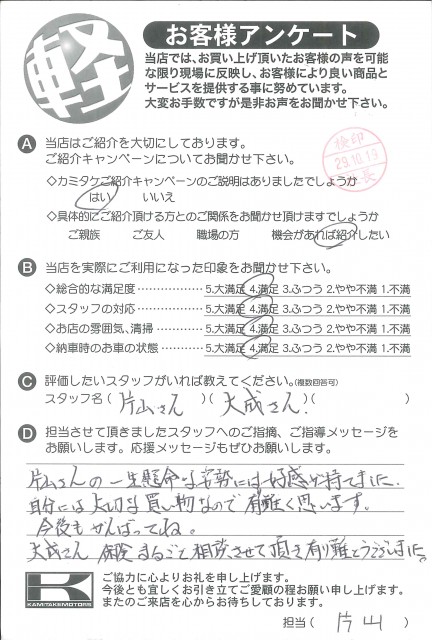 軽
お客様アンケート
当店では、お買い上げ頂いたお客様の声を可能
な限り現場に反映し、お客様により良い商品と
サービスを提供する事に努めています。
大変お手数ですが是非お声をお聞かせ下さい。
A 当店はご紹介を大切にしております。
ご紹介キャンペーンについてお聞かせ下さい。
検印
29.10.19
長
◇カミタケご紹介キャンペーンのご説明はありましたでしょうか
はい いいえ
◇具体的にご紹介頂ける方とのご関係をお聞かせ頂けますでしょうか
ご親族 ご友人 職場の方 機会があれば紹介したい
B 当店を実際にご利用になった印象をお聞かせ下さい。
◇総合的な満足度 ‥‥‥‥‥‥ 5.大満足 4.満足 3.ふつう 2.やや不満 1.不満
◇スタッフの対応 ‥‥‥‥‥‥ 5.大満足 4.満足 3.ふつう 2.やや不満 1.不満
◇お店の雰囲気、清掃 ‥‥‥‥ 5.大満足 4.満足 3.ふつう 2.やや不満 1.不満
◇納車時のお車の状態 ‥‥‥‥ 5.大満足 4.満足 3.ふつう 2.やや不満 1.不満
C 評価したいスタッフがいれば教えてください。(複数回答可)
スタッフ名 ( 片山さん )( 大成さん )( )
D 担当させて頂きましたスタッフへのご指摘、ご指導メッセージを
お願いします。応援メッセージもぜひお願いします。
片山さんの一生懸命な姿勢には好感が持てました。
自分には大切な買い物なので有難く思います。
今後もがんばってね。
大成さん 保険まるごと相談させて頂き有り難とうございました。
K
KAMITAKE MOTORS
ご協力に心よりお礼を申し上げます。
今後とも宜しくお引き立てご愛顧の程お願い申し上げます。
またのご来店を心からお待ちしております。
担当 ( 片山 )